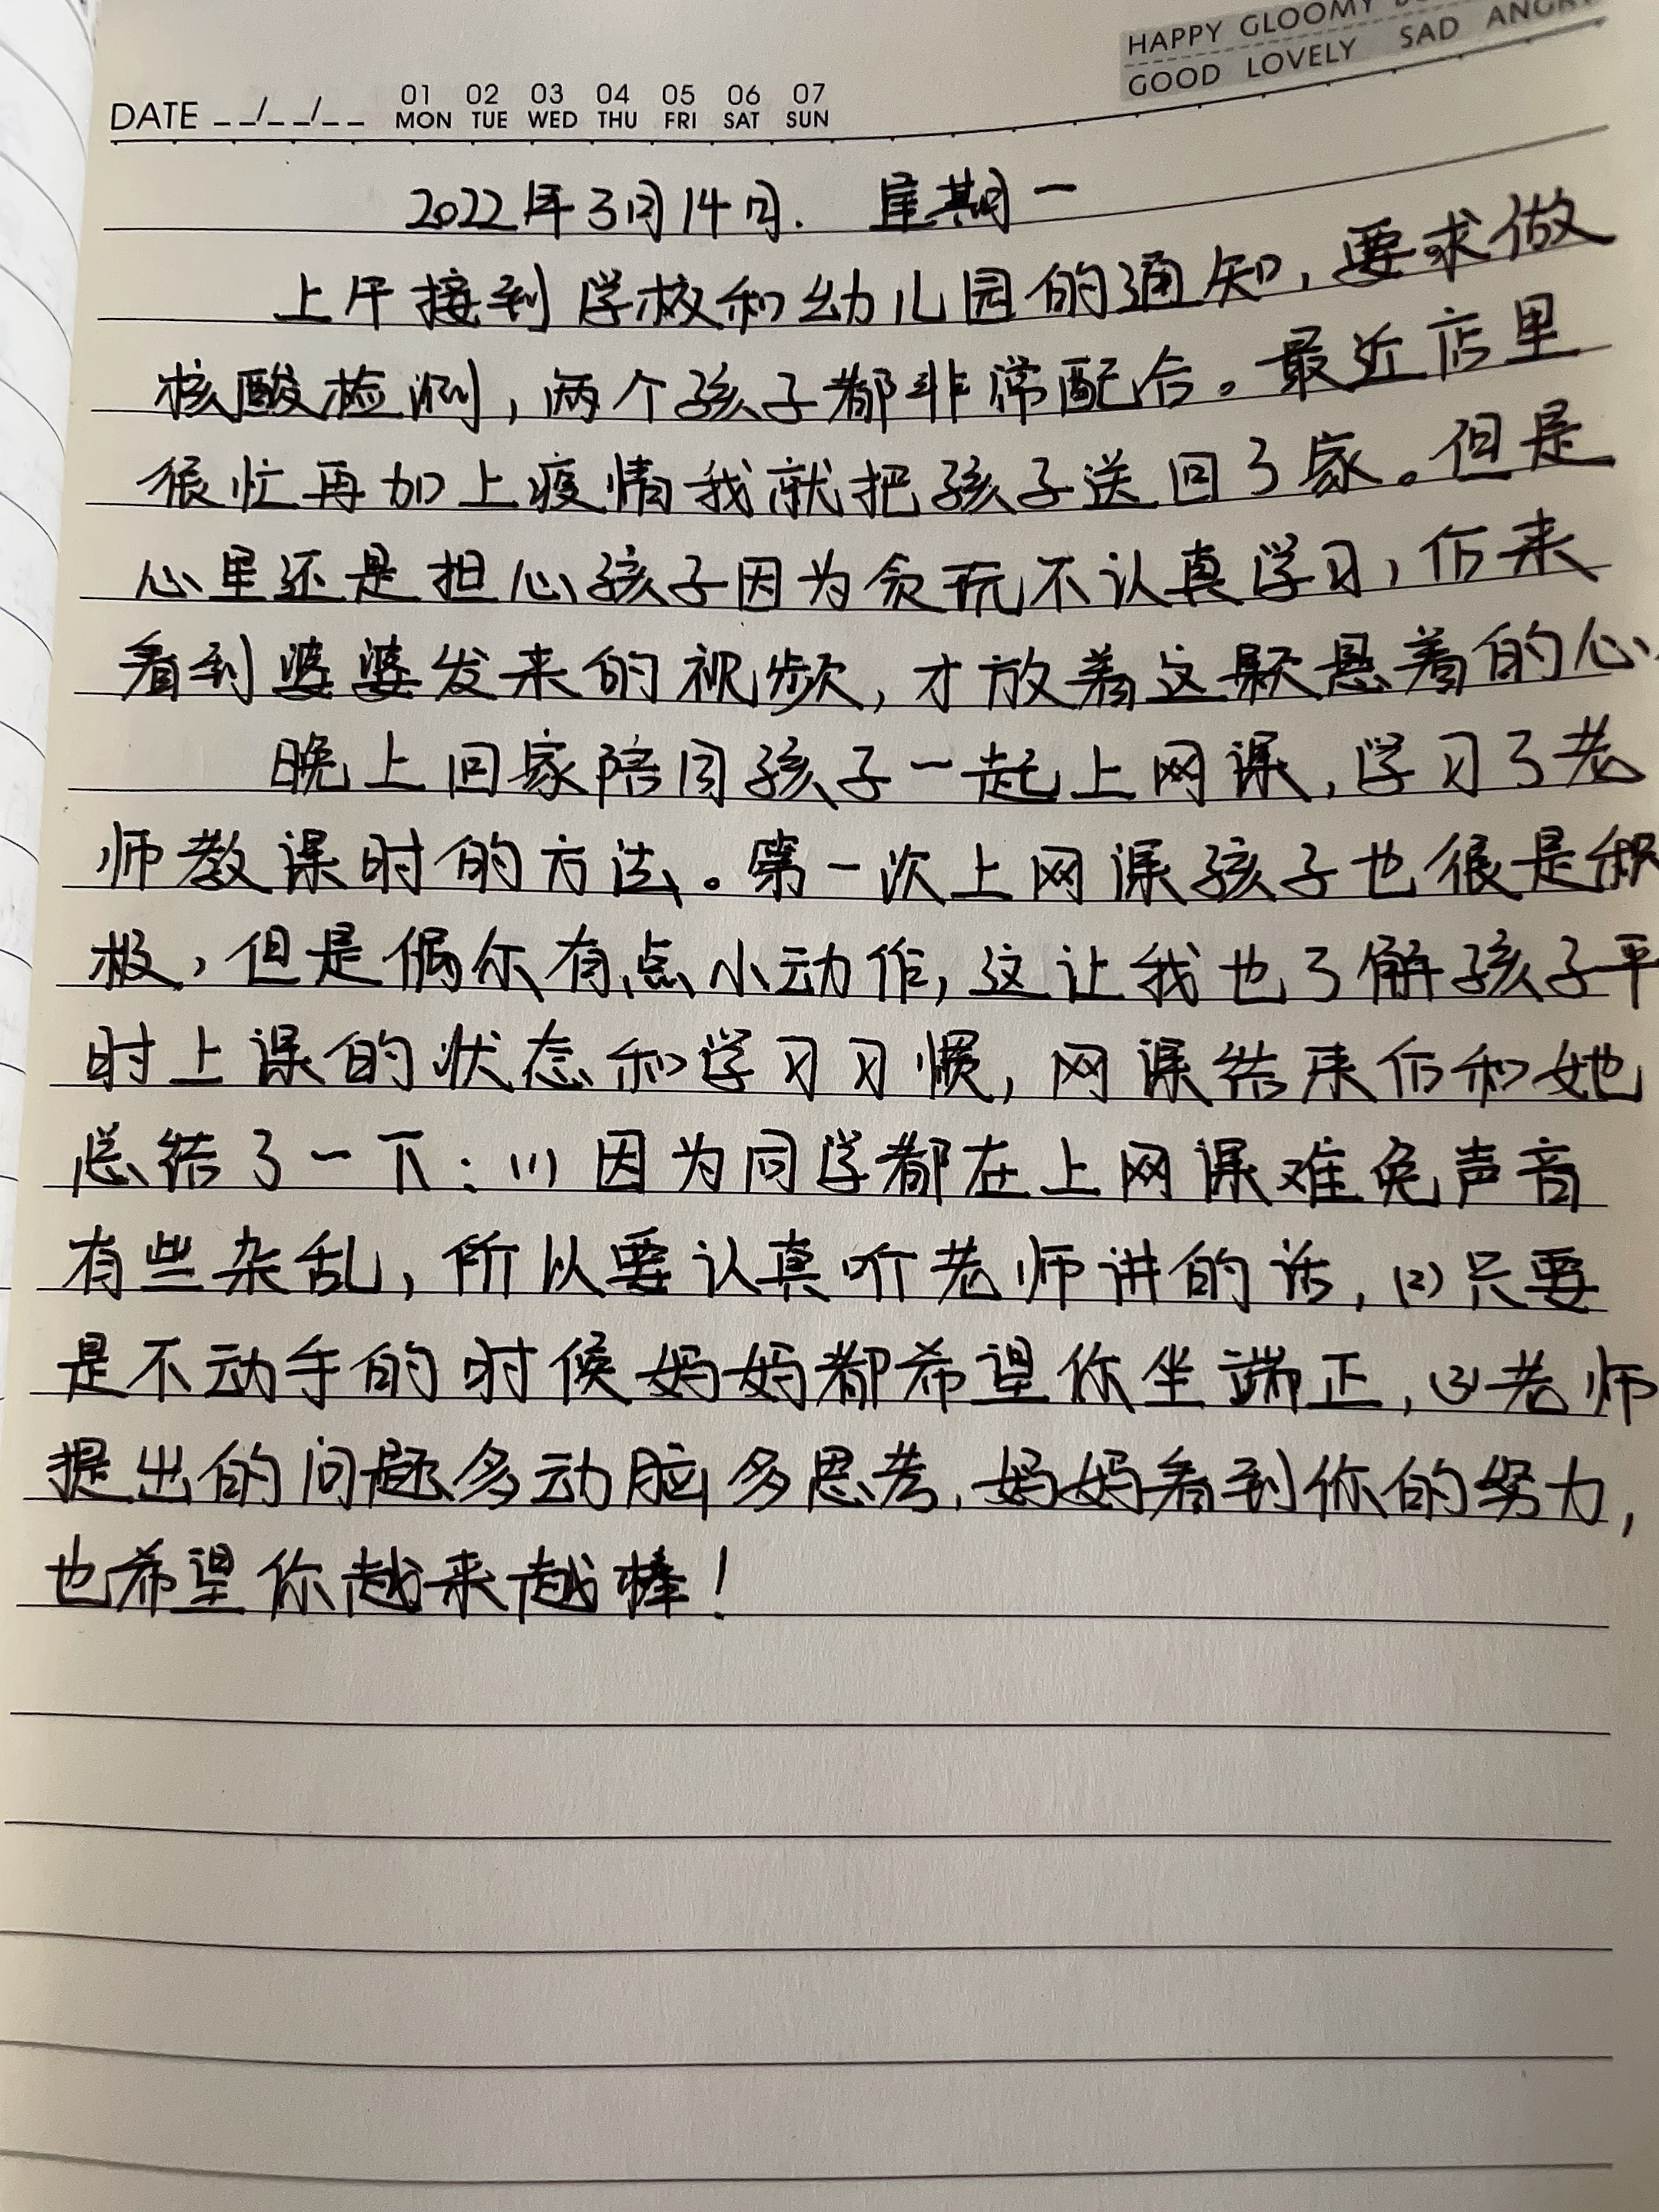 HAPPY GLOOMY
GOOD LOVELY SAD ANGRY
DATE __/__/__ 01 02 03 04 05 06 07
MON TUE WED THU FRI SAT SUN
2022年3月14日. 星期一
上午接到学校和幼儿园的通知,要求做
核酸检测,两个孩子都非常配合。最近店里
很忙再加上疫情我就把孩子送回了家。但是
心里还是担心孩子因为贪玩不认真学习,后来
看到婆婆发来的视频,才放着这颗悬着的心
晚上回家陪同孩子一起上网课,学习了老
师教课时的方法。第一次上网课孩子也很是积
极,但是偶尔有点小动作,这让我也了解孩子平
时上课的状态和学习习惯,网课结束后和她
总结了一下:(1)因为同学都在上网课难免声音
有些杂乱,所以要认真听老师讲的话,(2)只要
是不动手的时候妈妈都希望你坐端正,(3)老师
提出的问题多动脑多思考,妈妈看到你的努力,
也希望你越来越棒!